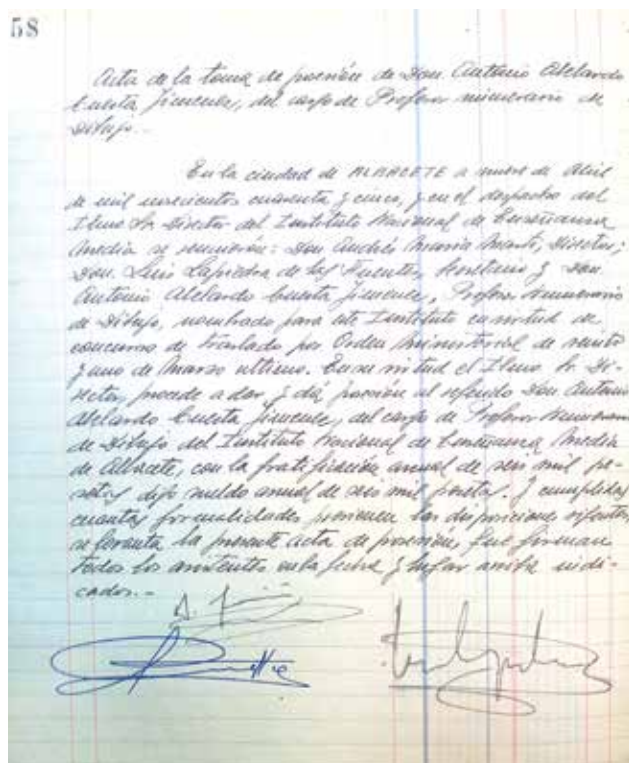 58
Acta de la toma de posesión de Don Antonio Abelardo
Cuesta Jimenez, del cargo de Profesor numerario de
Dibujo.-
En la ciudad de ALBACETE a nueve de Abril
de mil novecientos cuarenta y cinco, y en el despacho del
Ilmo Sr. Director del Instituto Nacional de Enseñanza
Media se reunieron: Don Andrés Director;
Don Luis Lapiedra de las Fuentes, Secretario y Don
Antonio Abelardo Cuesta Jimenez, Profesor Numerario
de Dibujo, nombrado para este Instituto en virtud de
concurso de traslado por Orden Ministerial de veinte
y uno de Marzo ultimo. En su virtud el Ilmo Sr. Di-
rector, procede a dar y dá posesión al referido Don Antonio
Abelardo Cuesta Jimenez, del cargo de Profesor Numerario
de Dibujo del Instituto Nacional de Enseñanza Media
de Albacete, con la gratificación anual de seis mil pe-
setas, digo sueldo anual de seis mil pesetas. Y cumplidas
cuantas formalidades previenen las disposiciones vigentes,
se levanta la presente acta de posesión, que firman
todos los asistentes en la fecha y lugar arriba indi-
cados.-